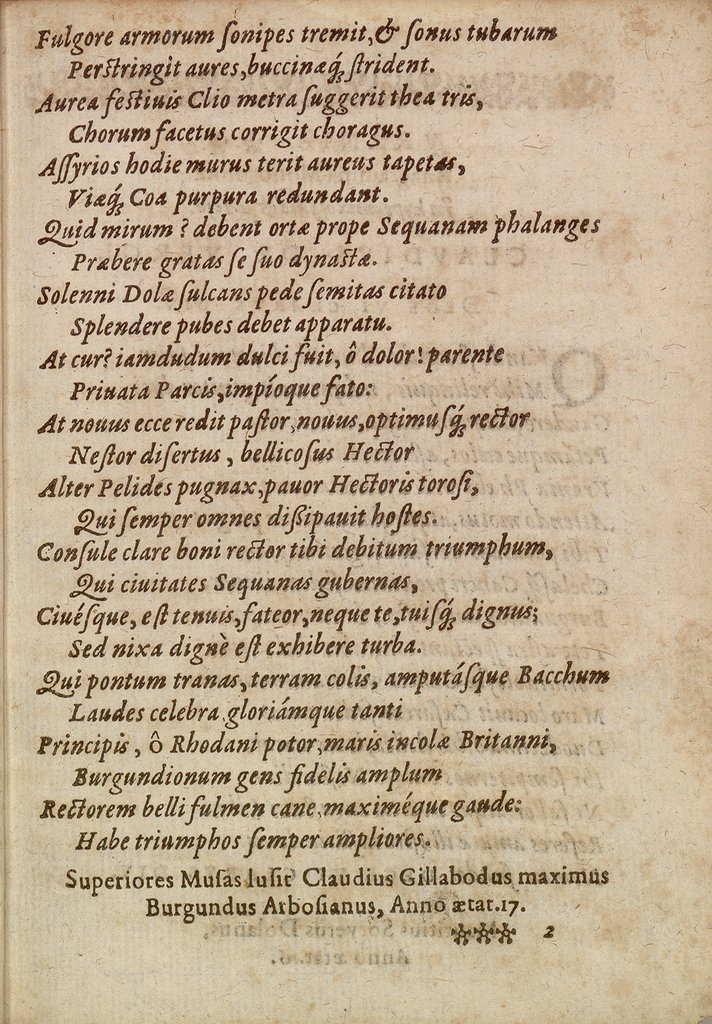 Fulgore armorum ſonipes tremit, & ſonus tubarum
Perſtringit aures, buccinæq́; ſtrident.
Aurea feſtiuis Clio metra ſuggerit thea tris,
Chorum facetus corrigit choragus.
Aſſyrios hodie murus terit aureus tapetas,
Viæq́; Coa purpura redundant.
Quid mirum? debent ortæ prope Sequanam phalanges
Præbere gratas ſe ſuo dynaſtæ.
Solenni Dolæ ſulcans pede ſemitas citato
Splendere pubes debet apparatu.
At cur? iamdudum dulci fuit, ô dolor! parente
Priuata Parcis, impíoque fato:
At nouus ecce redit paſtor, nouus, optimuſq́; rector
Neſtor diſertus, bellicoſus Hector
Alter Pelides pugnax, pauor Hectoris toroſi,
Qui ſemper omnes diſsipauit hoſtes.
Conſule clare boni rector tibi debitum triumphum,
Qui ciuitates Sequanas gubernas,
Ciuéſque, eſt tenuis, fateor, neque te, tuiſq́; dignus;
Sed nixa dignè eſt exhibere turba.
Qui pontum tranas, terram colis, amputáſque Bacchum
Laudes celebra gloriámque tanti
Principis, ô Rhodani potor, maris incolæ Britanni,
Burgundionum gens fidelis amplum
Rectorem belli fulmen cane, maximéque gaude:
Habe triumphos ſemper ampliores.
Superiores Muſas luſit Claudius Gillabodus maximus
Burgundus Arboſianus, Anno ætat. 17.
*** 2